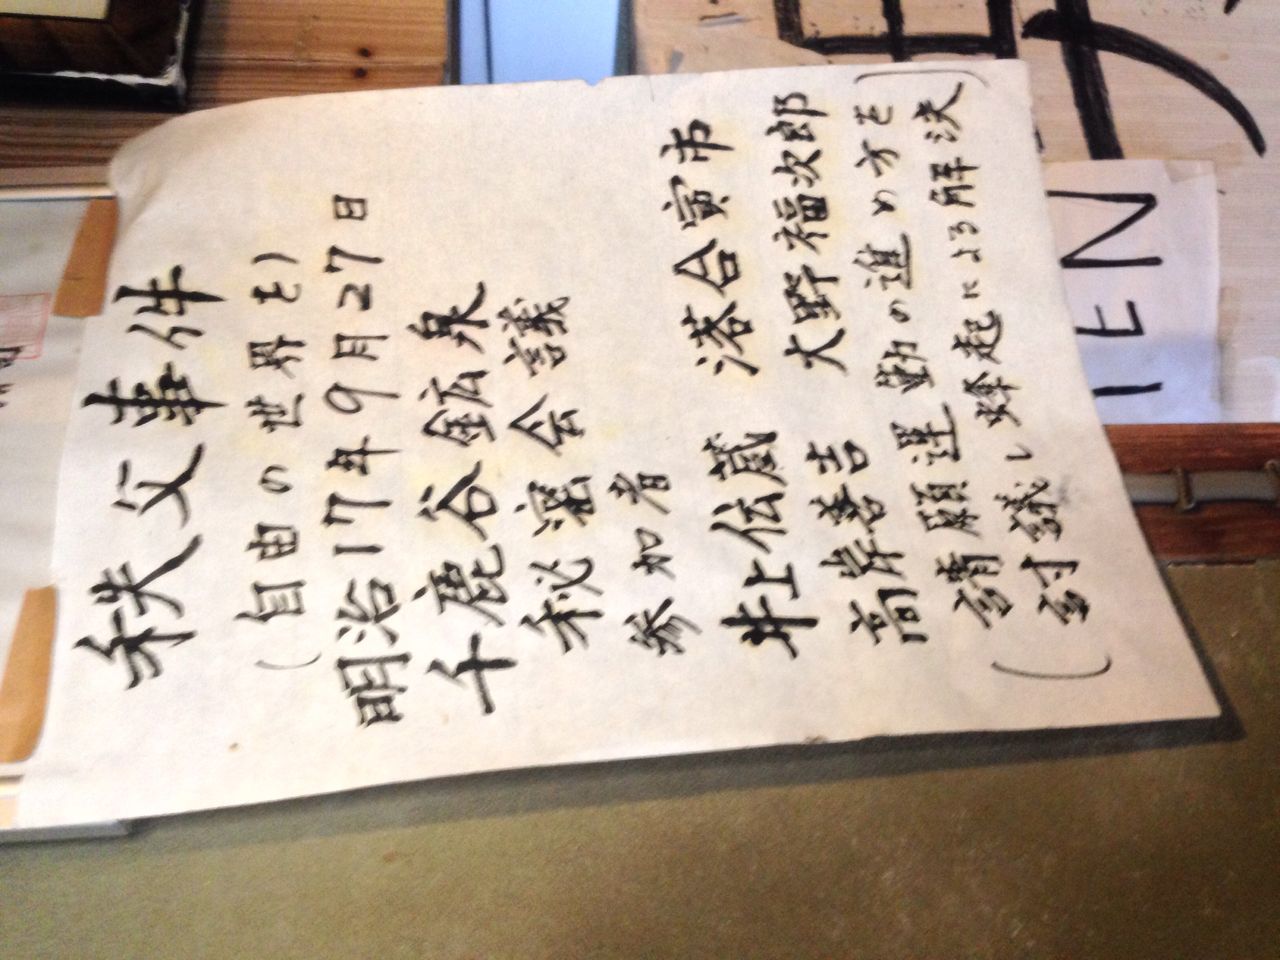 秩父事件
(自由の世界を)
明治17年9月27日
千鹿谷鉱泉
秘密会議
参加者
井上伝蔵 落合寅市
高岸善吉 大野福次郎
(請願運動の進め方を
討議し蜂起による解決)
TEN